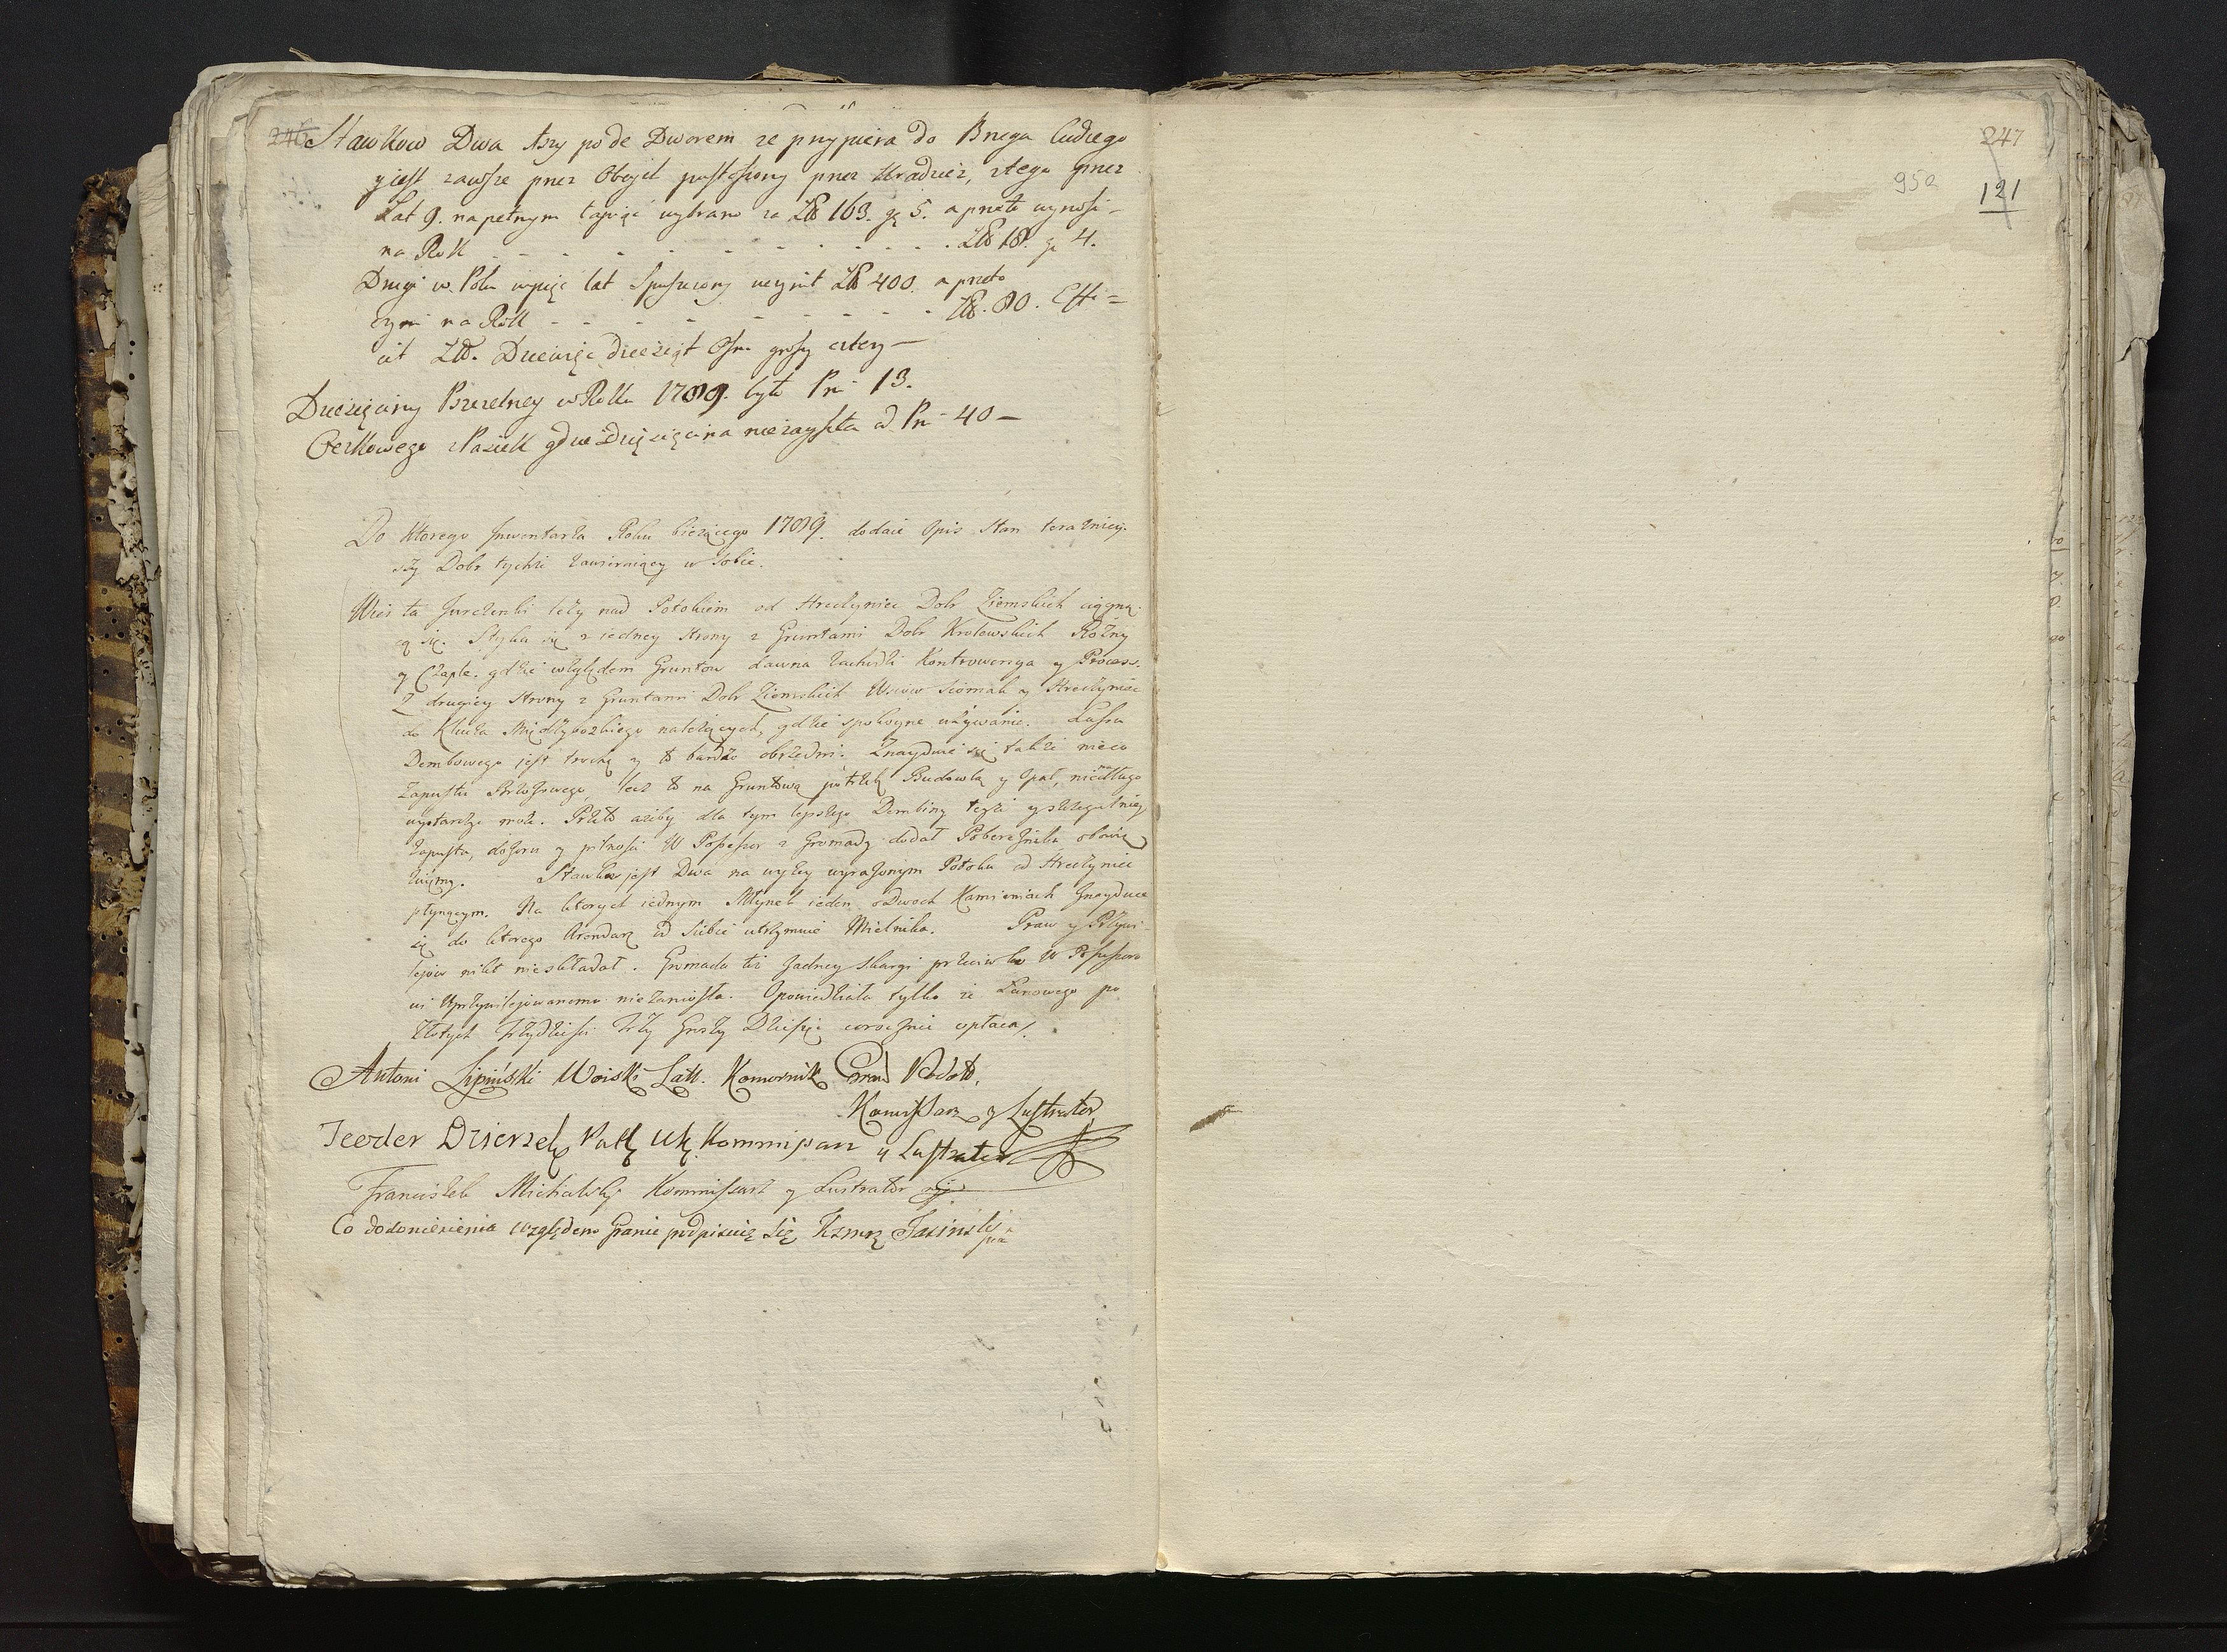 246
Stawkow Dwa 1szy pode Dworem ze przypiera do Brzega Cudzego
y iest zawsze przez Obcych pustoszony przez Kradzież, z tego przez
Lat 9. na pełnym łapiąc wybrano za Zł 163. gr 5. a przeto wynosi
na Rok - - - - - - - - - Zł 18. gr 4.
Drugi w Polu w pięc lat Spuszczony uczynił Zł 400. a przeto
czyni na Rok - - - - - - - - Zł. 80. Effi=
cit Złt. Dziewięcdziesiąt Osm groszy cztery —
Dziesięciny Pszczelney w Roku 1789. było Pni 13.
Oczkowego z Pasiek gdzie Dzięsięcina nie zayszła od Pni 40 —
Do ktorego Inwentarza Roku bieżącego 1789. dodaie Opis Stan teraźniey-
szy Dobr tychże zawieraiący w Sobie.
Wieś ta Jurczenki leży nad Potokiem od Hreczyniec Dobr Ziemskich ciągną-
cą się. Styka się z iedney Strony z Gruntami Dobr Krolewskich Rożny
y Czaple. gdzie względem Gruntow dawna zachodzi Kontrowersya y Process.
Z drugiey Strony z Gruntami Dobr Ziemskich Wsiow Siomak y Hreczyniec
do Klucza Międzybozkiego należących, gdzie spokoyne używanie. Lassu
Dembowego jest trochę y to bardzo obrzedni. Znayduie się także nieco
Zapustu Brzozowego, lecz to na Gruntową potrzebę Budowlą y Opał, nie na długo
wystarczyc może. Przeto ażeby dla tym lepszego Dembiny teyże y szczegulniey
Zapustu, dozoru y pilności W Possessor z Gromady dodał Pobereznika obowią
zuięmy. Stawkow jest Dwa na wyżey wyrażonym Potoku od Hreczyniec
płynącym. Na ktorych iednym Młynek ieden o Dwoch Kamieniach Znayduie
się do ktorego Arendarz od Siebie utrzymuie Mielnika. Praw y Przywi-
lejow nikt nie składał. Gromada też żadney skargi przeciwko W Possessoro
wi Uprzywilejowanemu nie zaniosła. Opowiedziała tylko iż Łanowego po
Złotych trzydzieści trzy Groszy Dziesięc corocznie opłaca.
Antoni Lipiński Woiski Lat. Komornik Gran Podol.
Komissarz y Lustrator
Teodor Dzierzek Kommissarz y Lustrator
Franciszek Michalski Kommissarz y Lustrator
Co do doniesienia względem Granic podpisuię się Jasinski
247
121
95a